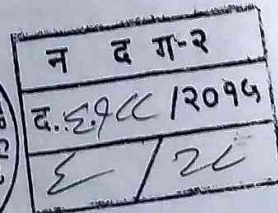 न द ग-२
द. ६१८८ /२०१५
६ / २८